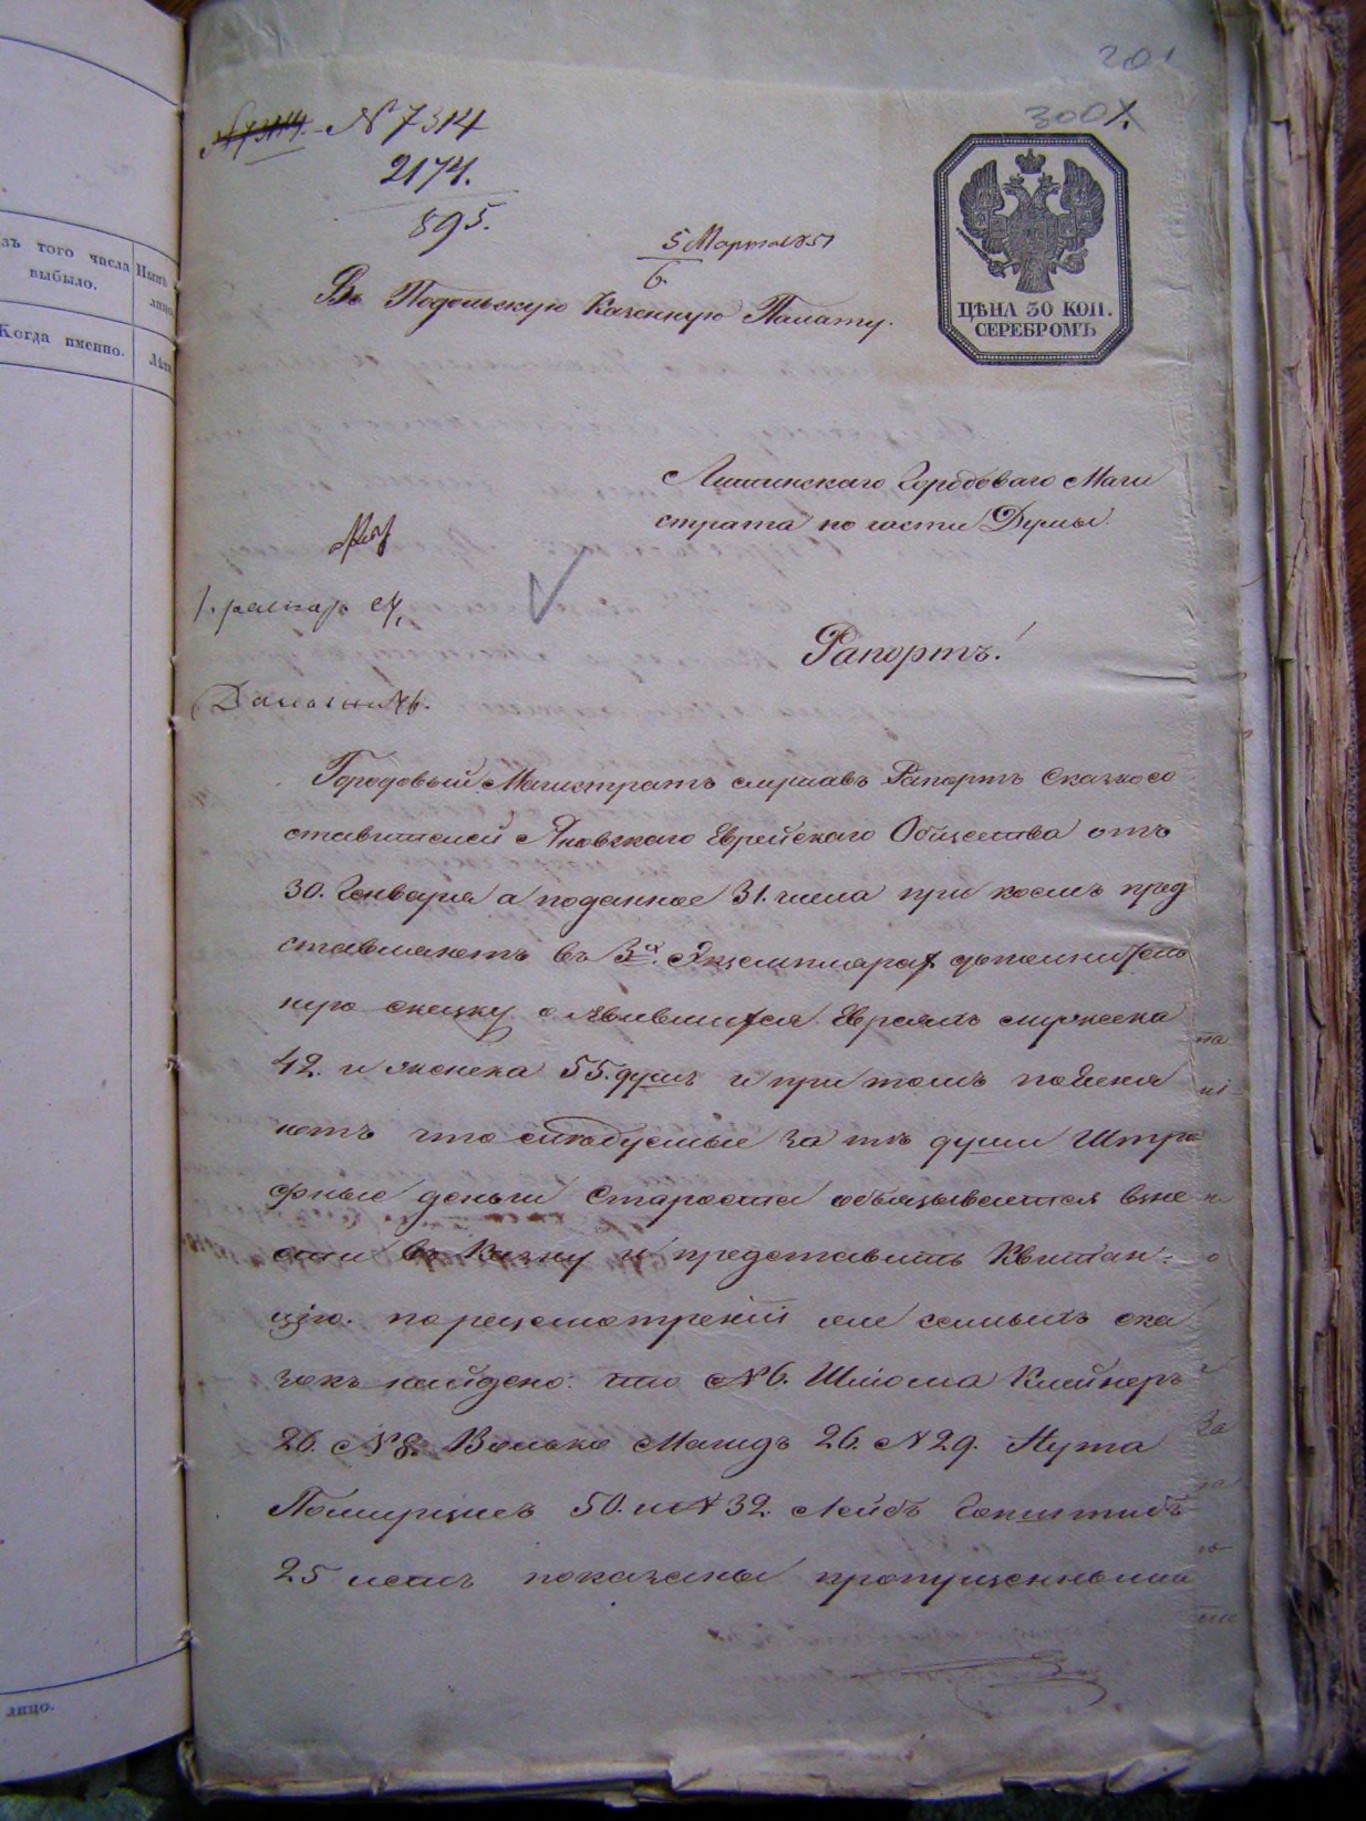 201
300
№ 7314. № 7314
2174.
895.
5 Марта 1851
6
Въ Подольскую Казенную Палату.
ЦѢНА 30 КОП.
СЕРЕБРОМЪ
Литинскаго Городоваго Маги
страта по части Думы.
Рапортъ!
Городовый Магистратъ слушавъ Рапортъ Сказкосо
ставителей Яновскаго Еврейскаго Общества отъ
30. Генваря а поданное 31. числа при коемъ пред
ставляютъ въ 3х. Экземплярах дополнитель
ную сказку о явившихся Евреяхъ мужеска
42. и женска 55. душъ и при томъ поясня
ютъ что следуемые за тѣ души Штра
фные деньги Староста обязывается взне
сти въ Казну и представить Квитан-
цію. по рецсмотреніи семыхъ ска
зокъ найдено: что № 6. Шлиома Клейнеръ
26. № 8. Волько Магидъ 26. № 29. Нута
Помирцисъ 50. и № 32. Лейбъ Гопштибъ
25 летъ показаны пропущенными
зъ того числа
выбыло.
Нынѣ
лицо
Когда именно.
Лѣта
лицо.